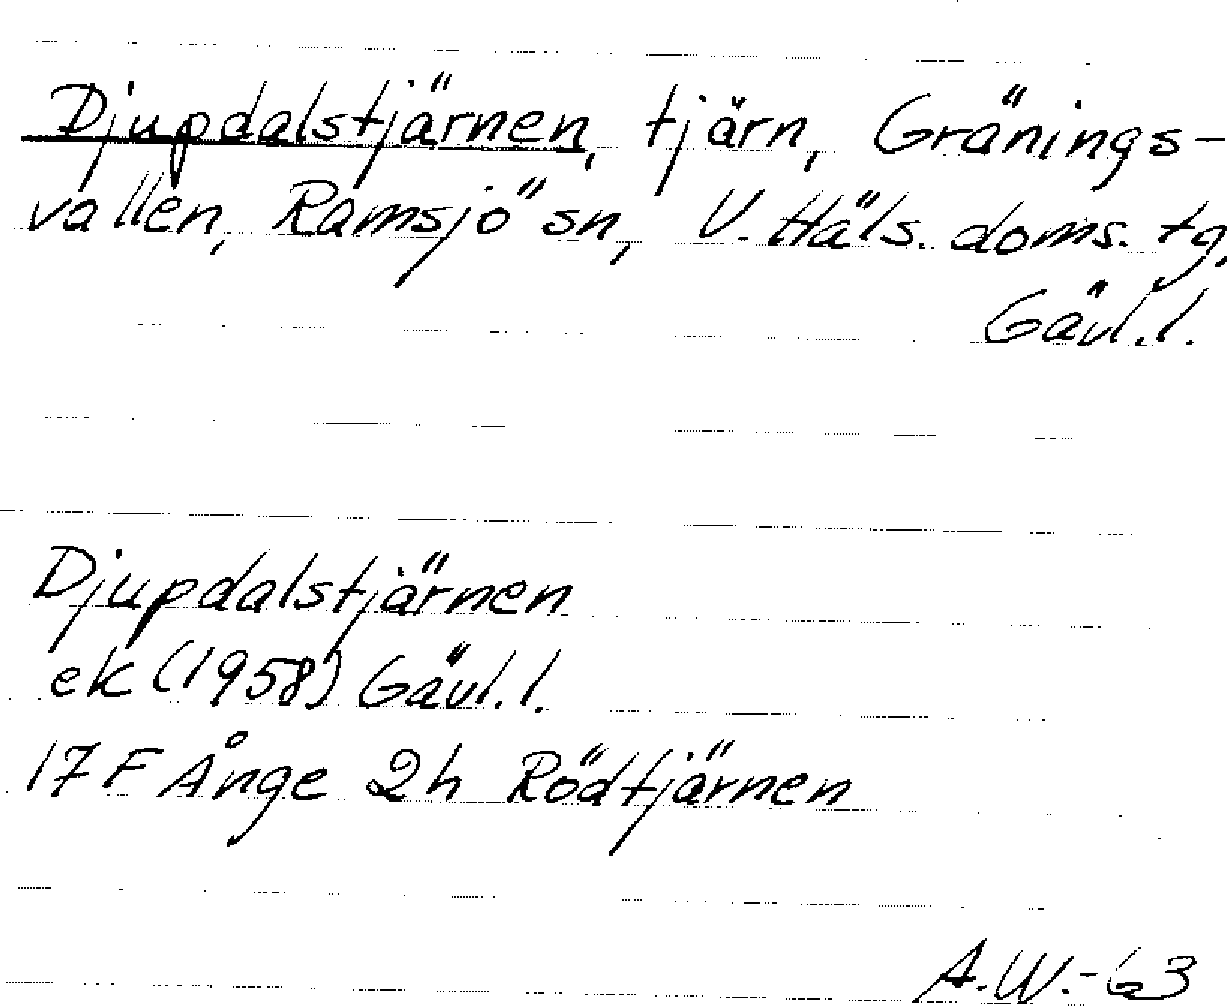 Djupdalstjärnen, tjärn, Gränings-
vallen, Ramsjö sn, V. Häls. doms. tg,
Gävl. l.
Djupdalstjärnen
ek (1958) Gävl. l.
17 F Ånge 2h Rödtjärnen
A.W.-63